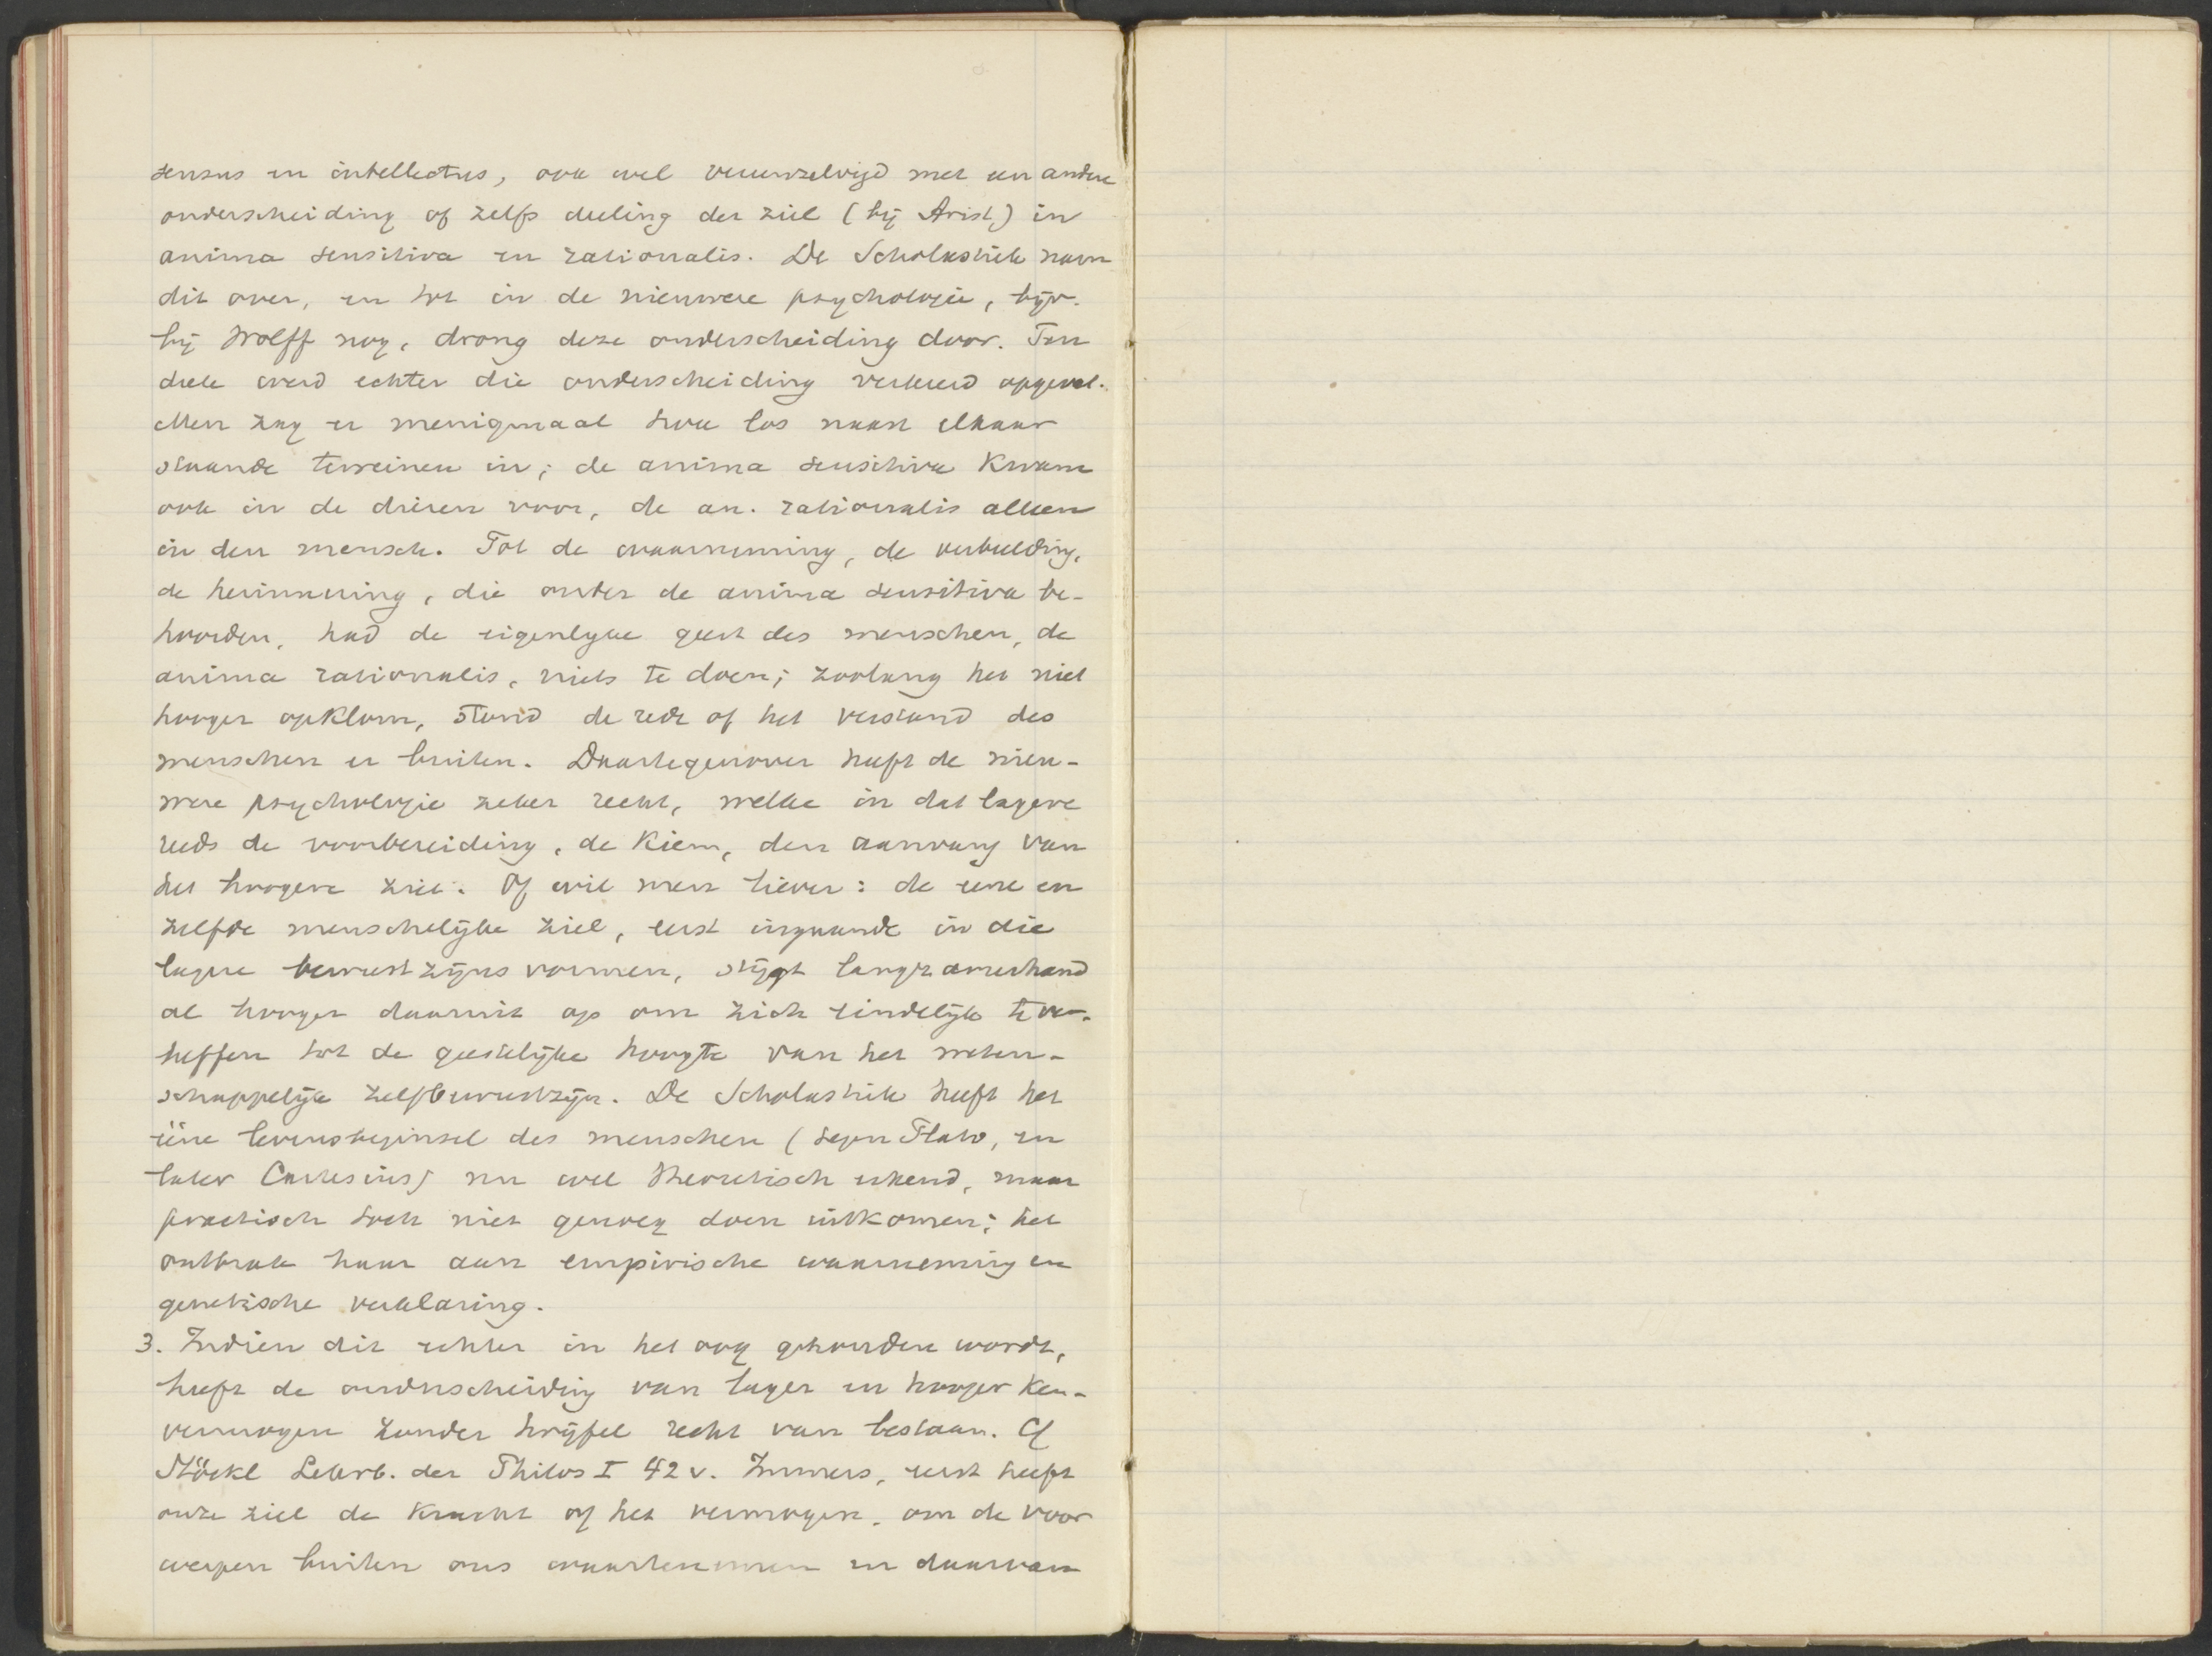 sensus en intellectus, ook wel vereenzelvigd met een andere
onderscheiding of zelfs deeling der ziel (bij Arist.) in
anima sensitiva en rationalis. De Scholastiek nam
dit over, en tot in de nieuwere psychologie, bijv.
bij Wolff nog, drong deze onderscheiding door. Ten
deele werd echter die onderscheiding verkeerd opgevat.
Men zag er menigmaal twee los naast elkaar
staande terreinen in; de anima sensitiva kwam
ook in de dieren voor, de an. rationalis alleen
in den mensch. Tot de waarneming, de verbeelding,
de herinnering, die onder de anima sensitiva be-
hoorden, had de eigenlyke geest des menschen, de
anima rationalis, niets te doen; zoolang het niet
hooger opklom, stond de rede of het verstand des
menschen er buiten. Daartegenover heeft de nieu-
were psychologie zeker recht, welke in dat lagere
reeds de voorbereiding, de kiem, den aanvang van
het hoogere ziet. Of wil men liever: de eene en
zelfde menschelijke ziel, eerst ingaande in die
lagere bewustzijns vormen, stijgt langzamerhand
al hooger daaruit op om zich eindelijk te ver-
heffen tot de geestelijke hoogte van het weten-
schappelijk zelfbewustzijn. De Scholastiek heeft het
ééne levensbeginsel des menschen (tegen Plato, en
later Cartesius) nu wel theoretisch erkend, maar
practisch toch niet genoeg doen uitkomen; het
ontbrak haar aan empirische waarneming en
genetische verklaring.
3. Indien dit echter in het oog gehouden wordt,
heeft de onderscheiding van lager en hooger ken-
vermogen zonder twijfel recht van bestaan. Cf
Stöckl Lehrb. der Philos I 42 v. Immers, eerst heeft
onze ziel de kracht of het vermogen, om de voor
werpen buiten ons waartenemen en daarvan